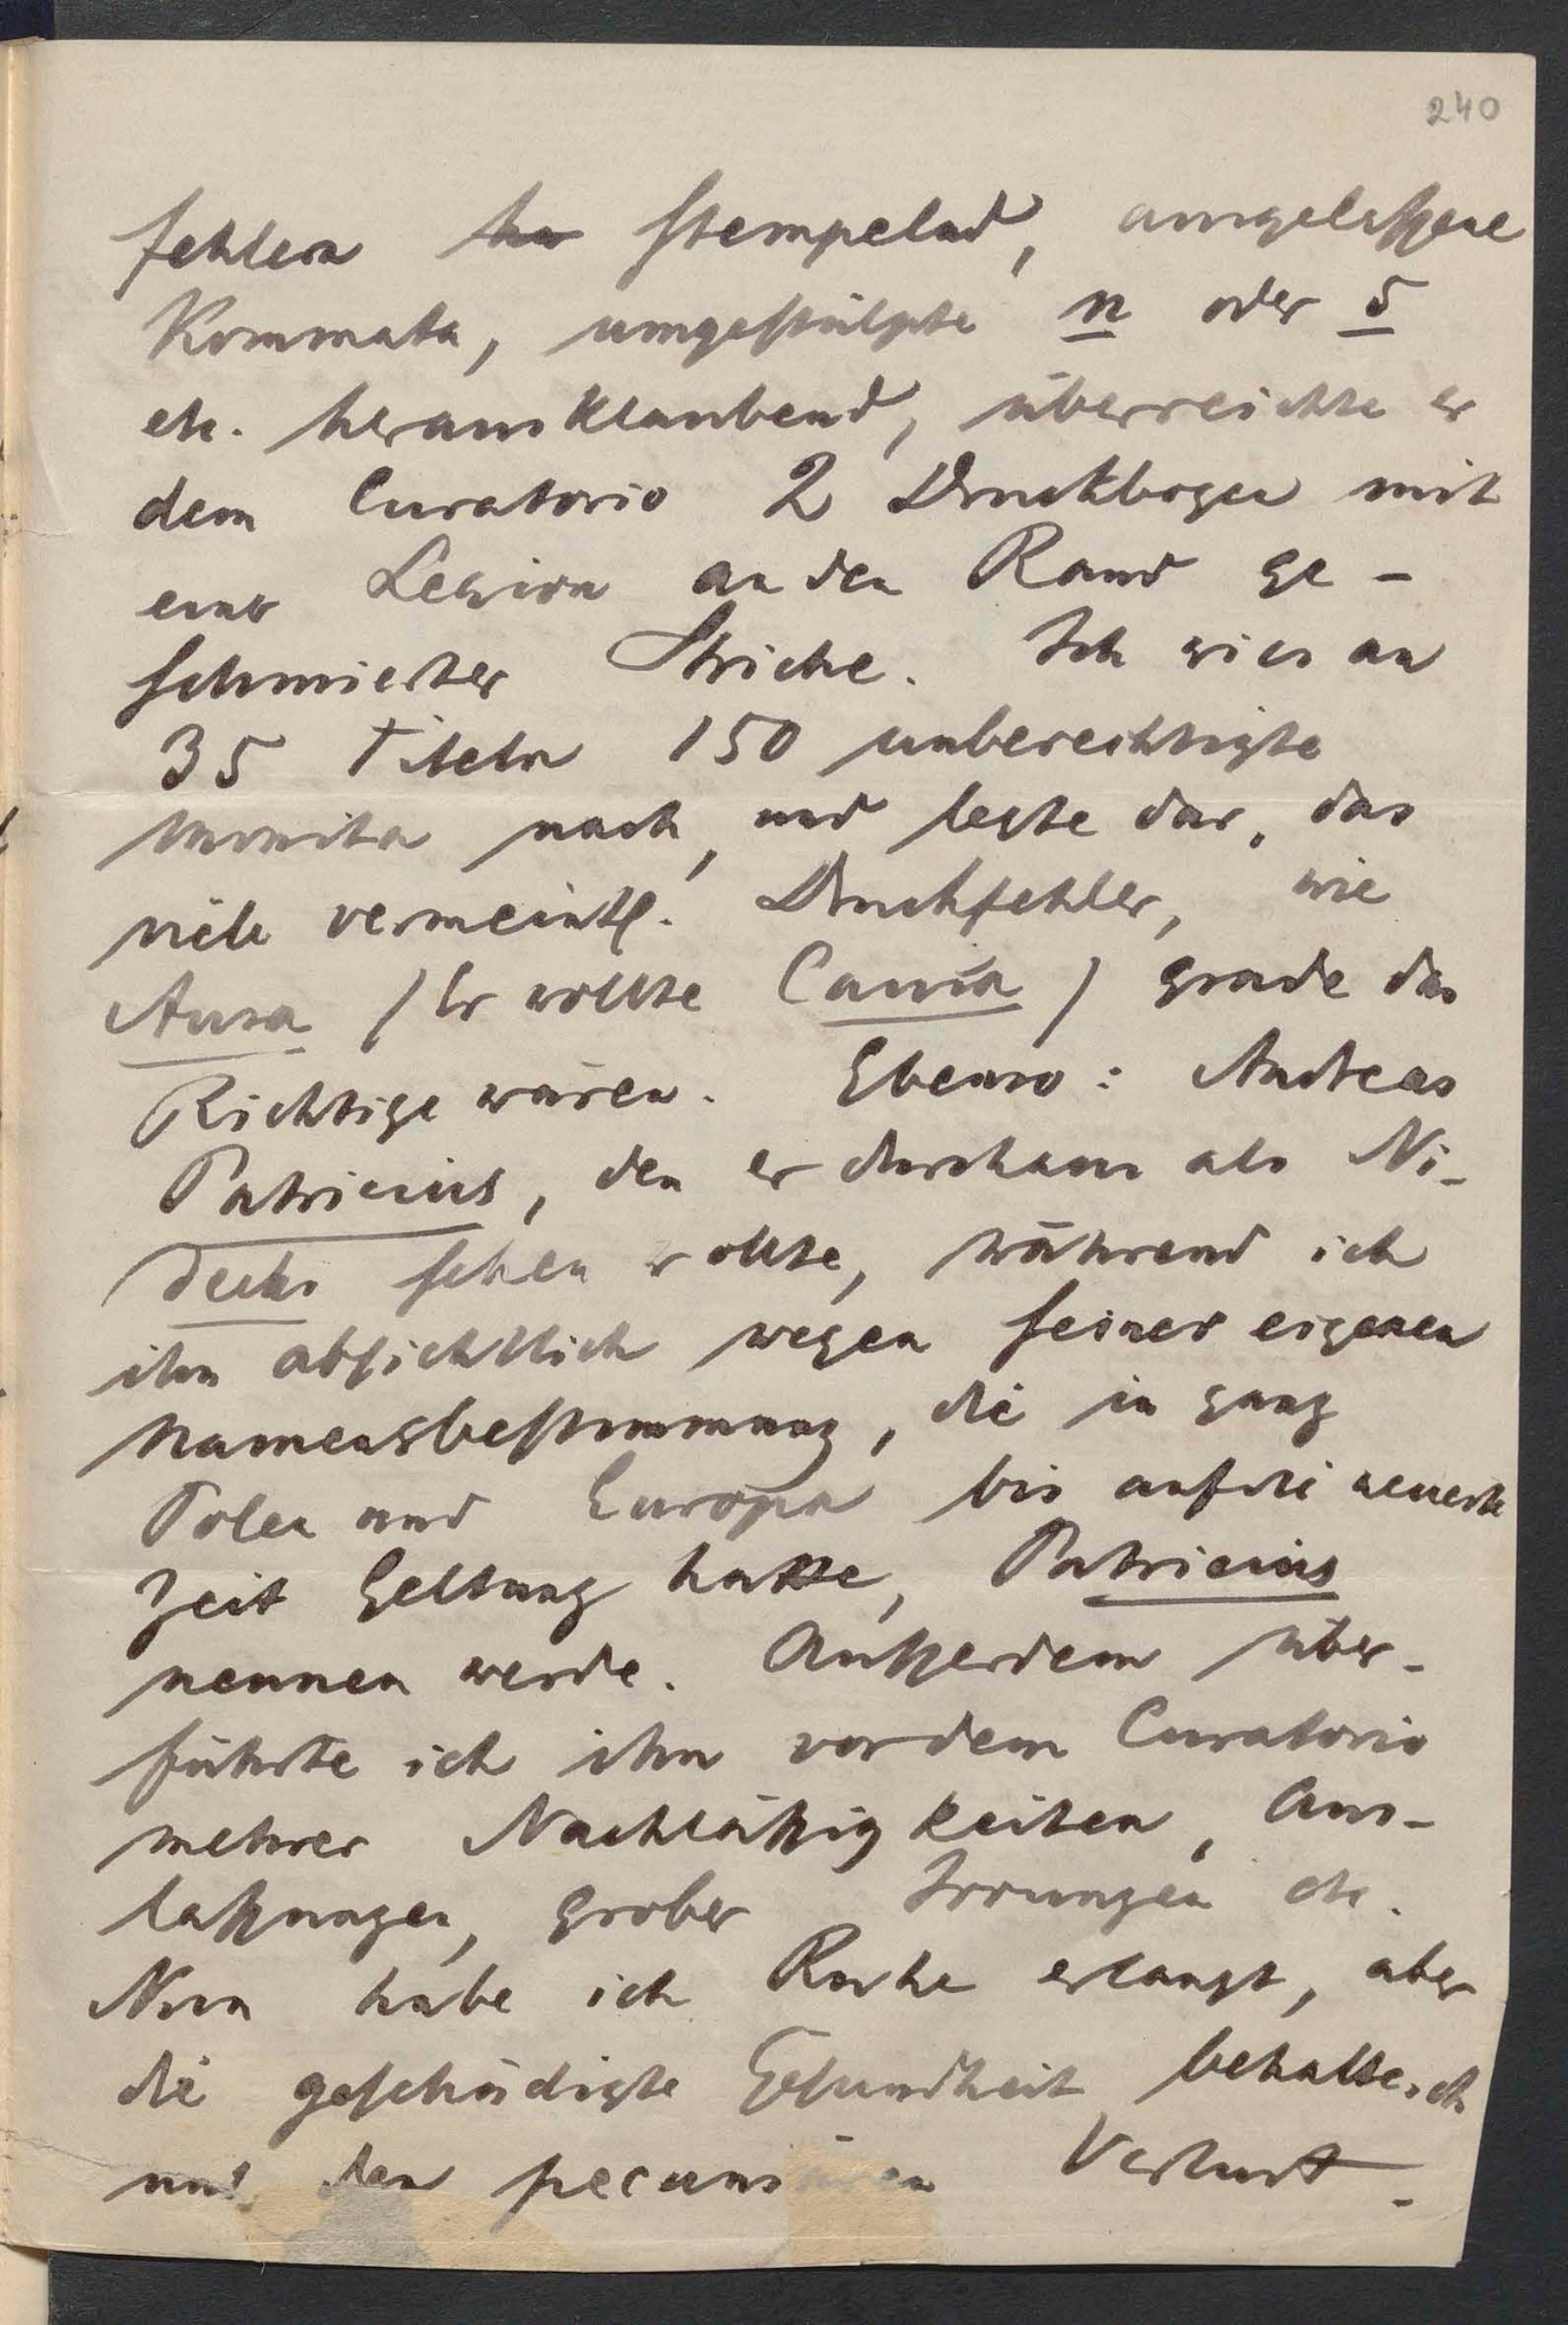 240
fehlern stempelnd, ausgelaßene
Kommata, umgestülpte n oder 5
etc. herausklaubend, überreichte er
dem Curatorio 2 Druckbogen mit
einer Legion an den Rand ge-
schmierter Striche. Ich wies an
35 Titeln 150 unberechtigte
Monita nach, und legte dar, das
viele vermeintl. Druckfehler, wie
Ausa (Er wollte Causa) grade das
Richtige wären. Ebenso: Andreas
Patricius, den er durchaus als Ni-
decki sehen wollte, während ich
ihn absichtlich wegen seiner eigenen
Namensbestimmung, die in ganz
Polen und Europa bis auf die neueste
Zeit Geltung hatte, Patricius
nennen werde. Außerdem über-
führte ich ihn vor dem Curatorio
mehrer Nachläßigkeiten, Aus-
laßungen, grober Irrungen etc.
Nun habe ich Ruhe erlangt, aber
die geschädigte Gesundheit behalte ich
und den pecuniären Verlust.